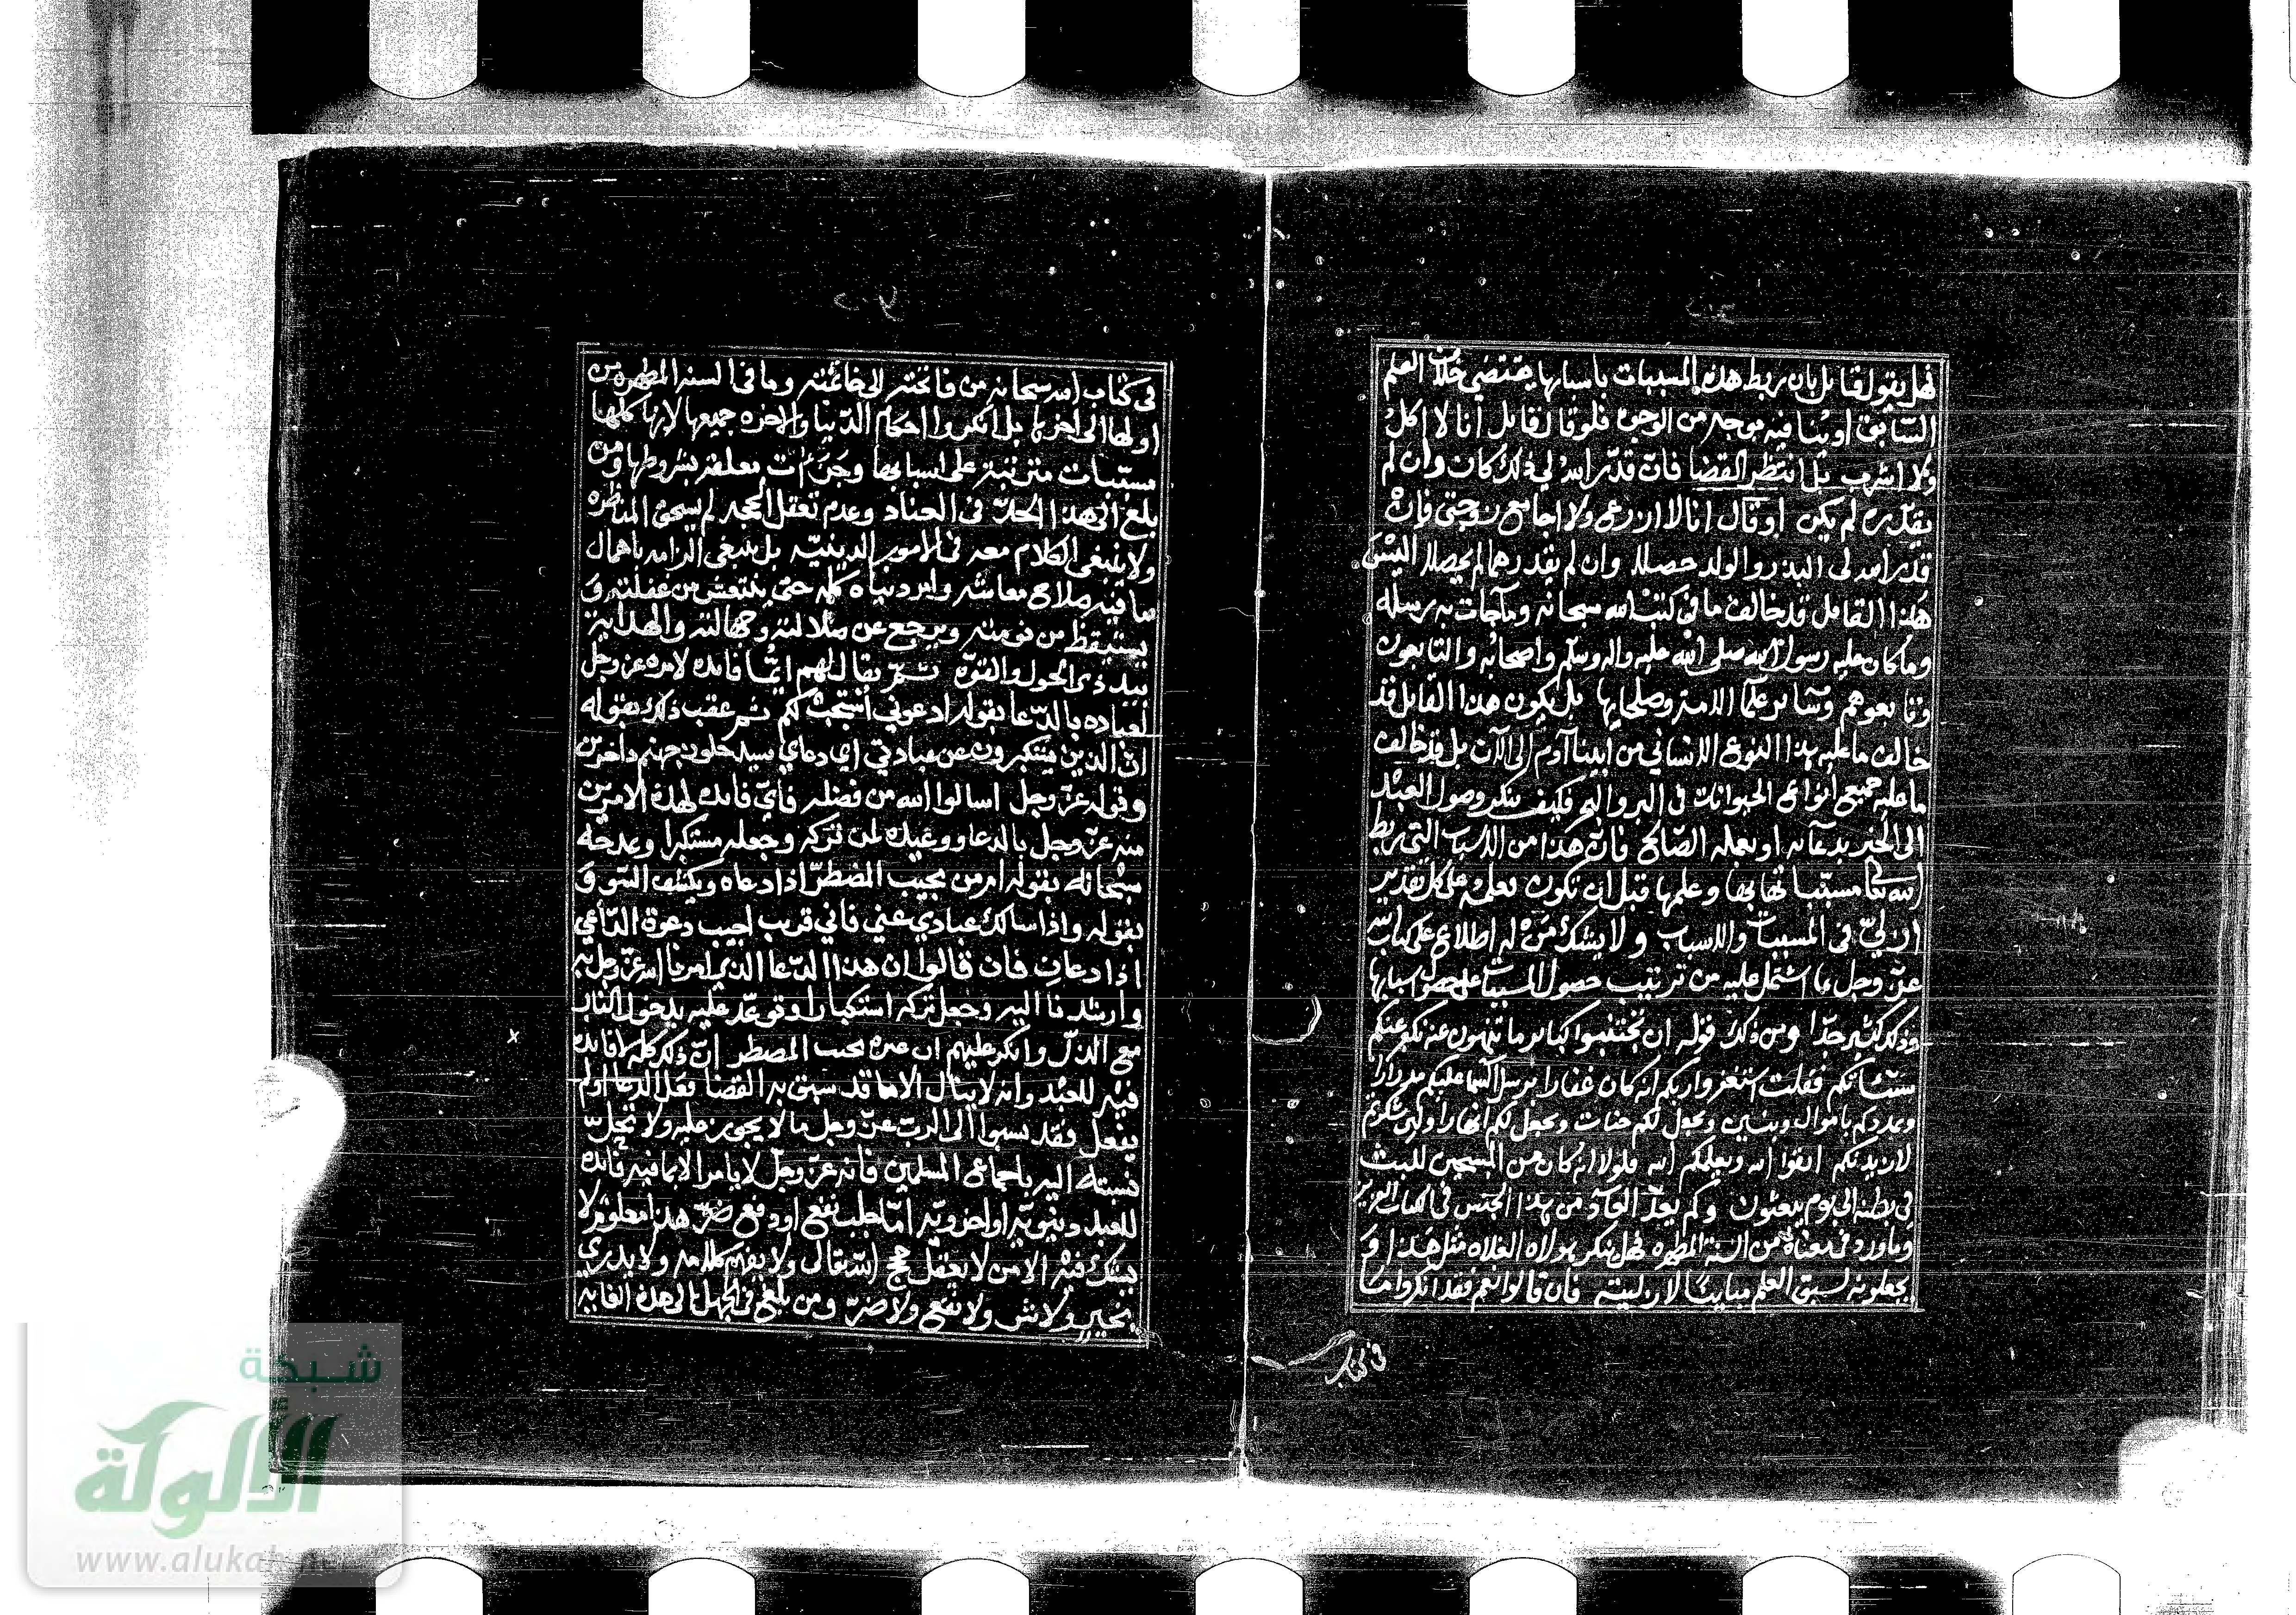 فهل يقول قائل بان ربط هذه المسببات باسبابها يقتضي خلاف العلم
السّابق او ينافيه بوجه من الوجوه فلو قال قائل انا لا اكل
ولا اشرب بل انتظر القضا فان قدّر الله لي ذلك كان وان لم
يقدّره لم يكن او قال انا لا ازرع ولا اجامع زوجتي فان
قدر الله لي البذر والولد حصلا وان لم يقدرهما لم يحصلا اليس
هذا القائل قد خالف ما في كتب الله سبحانه وما جات به رسله
وما كان عليه رسول الله صلى الله عليه واله وسلم واصحابه والتابعون
وتابعوهم وسائر علما الامة وصلحايها بل يكون هذا القائل قد
خالف ما عليه هذا النوع الانساني من ابينا آدم الى الآن بل قد خالف
ما عليه جميع انواع الحيوانات في البر والبحر فكيف ينكر وصول العبد
الى الخير بدعائه او بعمله الصّالح فان هذا من الاسباب التي ربط
الله تعا مسبّباتها بها وعلمها قبل ان تكون فعلمه على كل تقدير
ازليّ في المسببات والاسباب ولا يشك من له اطلاع على كتاب الله
عزّ وجل ما اشتمل عليه من ترتيب حصول المسببات على حصول اسبابها
وذلك كثير جدّا ومن ذلك قوله ان تجتنبوا كبائر ما تنهون عنه نكفر عنكم
سيئاتكم فقلت استغفروا ربكم انه كان غفارا يرسل السما عليكم مدرارا
ويمددكم باموال وبنين ويجعل لكم جنات ويجعل لكم انهارا ولئن شكرتم
لازيدنكم اتقوا الله ويعلمكم الله فلولا انه كان من المسبحين للبث
في بطنه الى يوم يبعثون وكم يعدّ العادّ من هذا الجنس في الكتاب العزيز
وما ورد في معناه من السنة المطهره فهل ينكر هولاء الغلاه مثل هذا و
يجعلونه لسبق العلم مباينًا لازليته فان قالوا نعم فقد انكروا ما
في كتاب
في كتاب الله سبحانه من فاتحته الى خاتمته وما في السنه المطهره من
اولها الى اخرها بل انكروا احكام الدّنيا والاخره جميعها لانها كلها
مسبّبات مترتبة على اسبابها وجزاءات معلقه بشروطها ومن
بلغ الى هذا الحدّ في العناد وعدم تعقل الحجه لم يستحق المناظره
ولا ينبغي الكلام معه في الامور الدينيّه بل ينبغي الزامه باهمال
ما فيه صلاح معاشه وامر دنياه كله حتى ينتعش من غفلته و
يستيقظ من نومته ويرجع عن ضلالته وجهالته والهداية
بيد ذى الحول والقوّة ثم يقال لهم ايّما فائده لامره عزوجل
لعباده بالدّعا بقوله ادعوني أستجب لكم ثم عقب ذلك بقوله
انّ الذين يستكبرون عن عبادتي اي دعاي سيدخلون جهنم داخرين
وقوله عزّ وجل اسالوا الله من فضله فأيّ فائده لهذه الامرين
منه عزّ وجل بالدعا ووعيده لمن تركه وجعله مستكبرا وعدحه
سبحانه بقوله امن يجيب المضطرّ اذا دعاه ويكشف السّو و
بقوله واذا سالك عبادي عني فاني قريب اجيب دعوة الدّاعي
اذا دعانِ فان قالوا ان هذا الدّعا الذي امرنا الله عزّ وجل به
وارشدنا اليه وجعل تركه استكبارا وتوعّد عليه بدخول النار
مع الذلّ وانكر عليهم ان غيره يجيب المضطر انّ ذلك كله لا فائده
فيه للعبد وانه لا ينال الا ما قد سبق به القضا فعل الدعا او لم
يفعل فقد نسبوا الى الرب عزّ وجل ما لا يجوز عليه ولا تحلّ
نسبته اليه باجماع المسلمين فانه عزّ وجلّ لا يامر الا بما فيه فائده
للعبد دنيويّه او اخرويّه امّا جلب نفع او دفع ضرّ هذا معلوم لا
يشك فيه الا من لا يعقل حجج الله تعالى ولا يفهم كلامه ولا يدري
بخير ولا شر ولا نفع ولا ضرّ ومن بلغ في الجهل الى هذه الغايه
شبكة
الألوكة
www.alukah.net